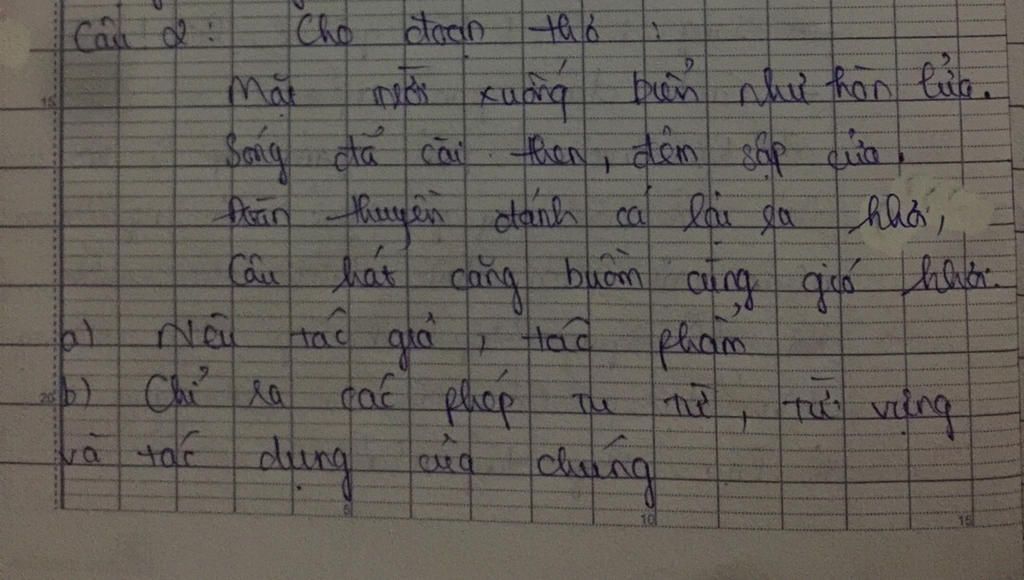 Câu 2: Cho đoạn thơ:
Mặt trời xuống biển như hòn lửa.
Sóng đã cài then, đêm sập cửa,
Đoàn thuyền đánh cá lại ra khơi,
Câu hát căng buồm cùng gió khơi.
a) Nêu tác giả, tác phẩm
b) Chỉ ra các phép tu từ, từ vựng
và tác dụng của chúng